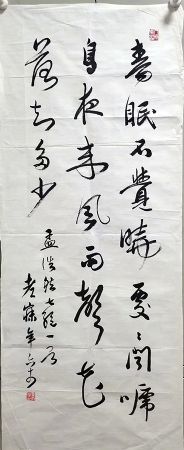 春眠不覺曉處々聞啼
鳥夜来風雨聲花
落知多少
孟浩然七绝一首